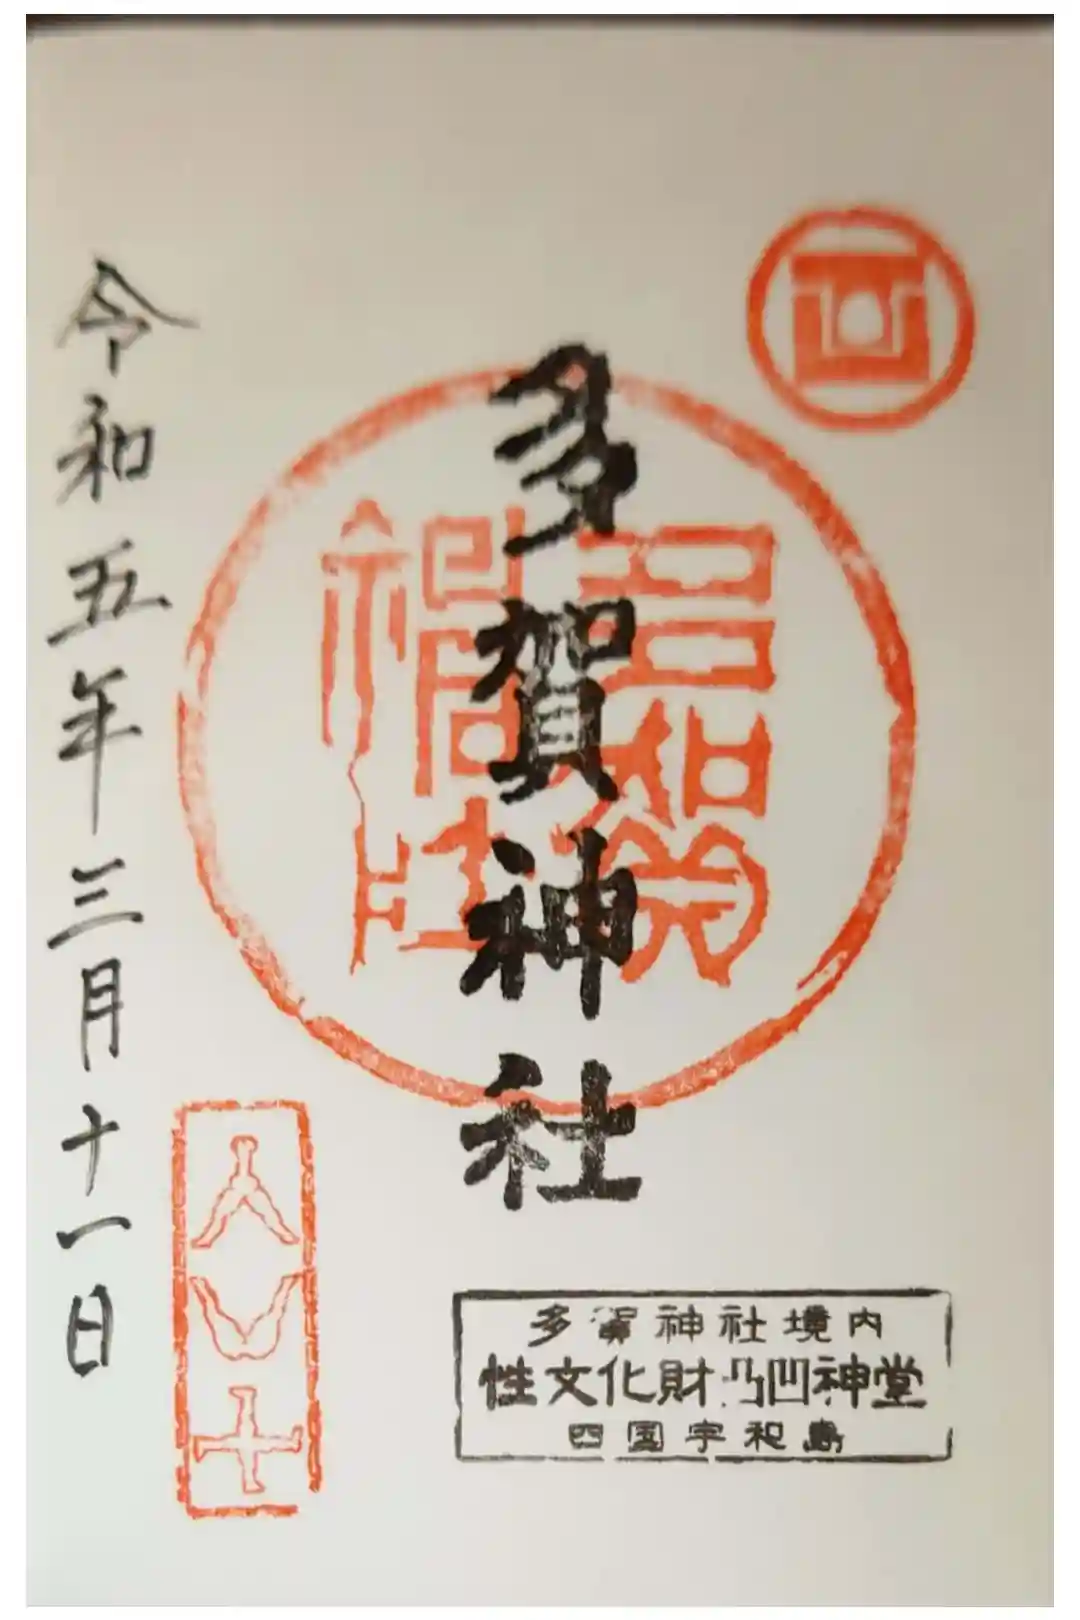 多賀神社
多賀神社
令和五年三月十一日
多賀神社境内
性文化財凸凹神堂
四国宇和島